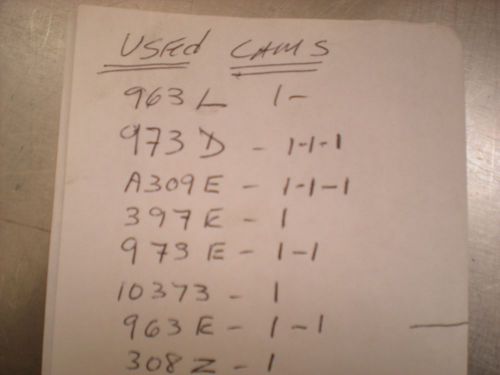 USED CAMS
963 L 1-
973 D - 1-1-1
A309E - 1-1-1
397E - 1
973 E - 1-1
10373 - 1
963 E - 1-1
308 Z - 1